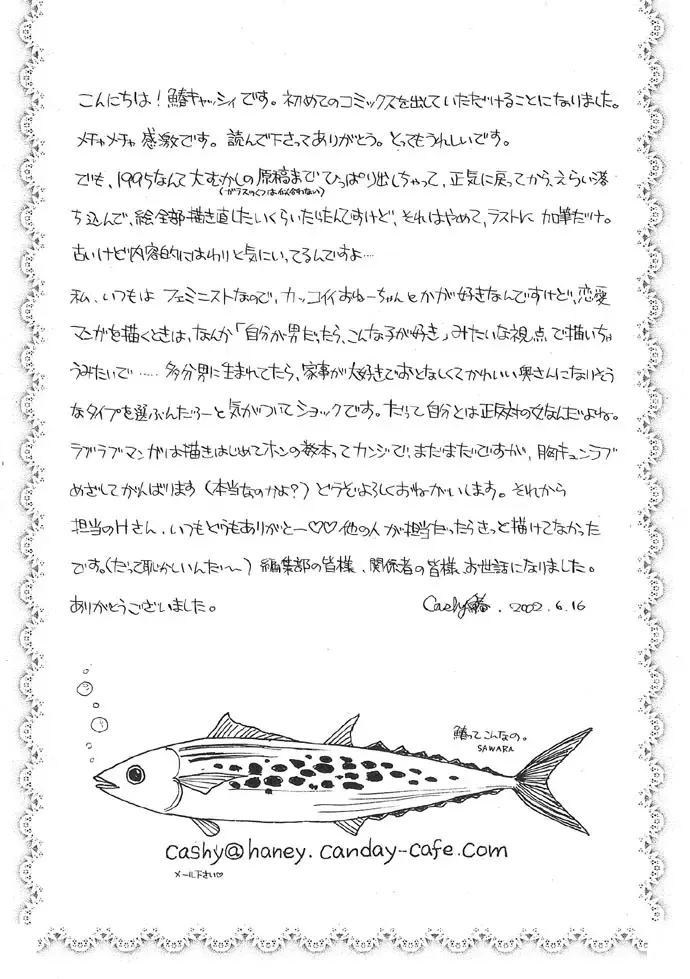 こんにちは！鰆キャッシィです。初めてのコミックスを出していただけることになりました。
メチャメチャ感激です。読んで下さってありがとう。とってもうれしいです。
でも、1995なんて大むかしの原稿までひっぱり出しちゃって、正気に戻ってから、えらい落
(ガラスのくつは似合わない)
ち込んで、絵全部描き直したいくらいだったんですけど、それはやめて、ラストに加筆だけ。
古いけど内容的にはわりと気にいってるんですよ…
私、いつもは フェミニストなので、カッコイイおねーちゃんとかが好きなんですけど、恋愛
マンガを描くときは、なんか「自分が男だったら、こんな子が好き」みたいな視点で描いちゃ
うみたいで…… 多分男に生まれてたら、家事が大好きでおとなしくてかわいい奥さんになりそう
なタイプを選ぶんだろーと気がついてショックです。だって自分とは正反対の女なんだよね。
ラブラブマンガは描きはじめてホンの数本ってカンジで、まだまだですが、胸キュンラブ
めざしてがんばります（本当なのかよ？）どうぞよろしくおねがいします。それから
担当のHさん、いつもどうもありがとー♡♡ 他の人が担当だったらきっと描けてなかった
です。(だって恥かしいんだい〜) 編集部の皆様、関係者の皆様、お世話になりました。
ありがとうございました。
Cashy鰆. 2002.6.16
鰆ってこんなの。
SAWARA
cashy@haney.canday-cafe.com
メール下さい♡